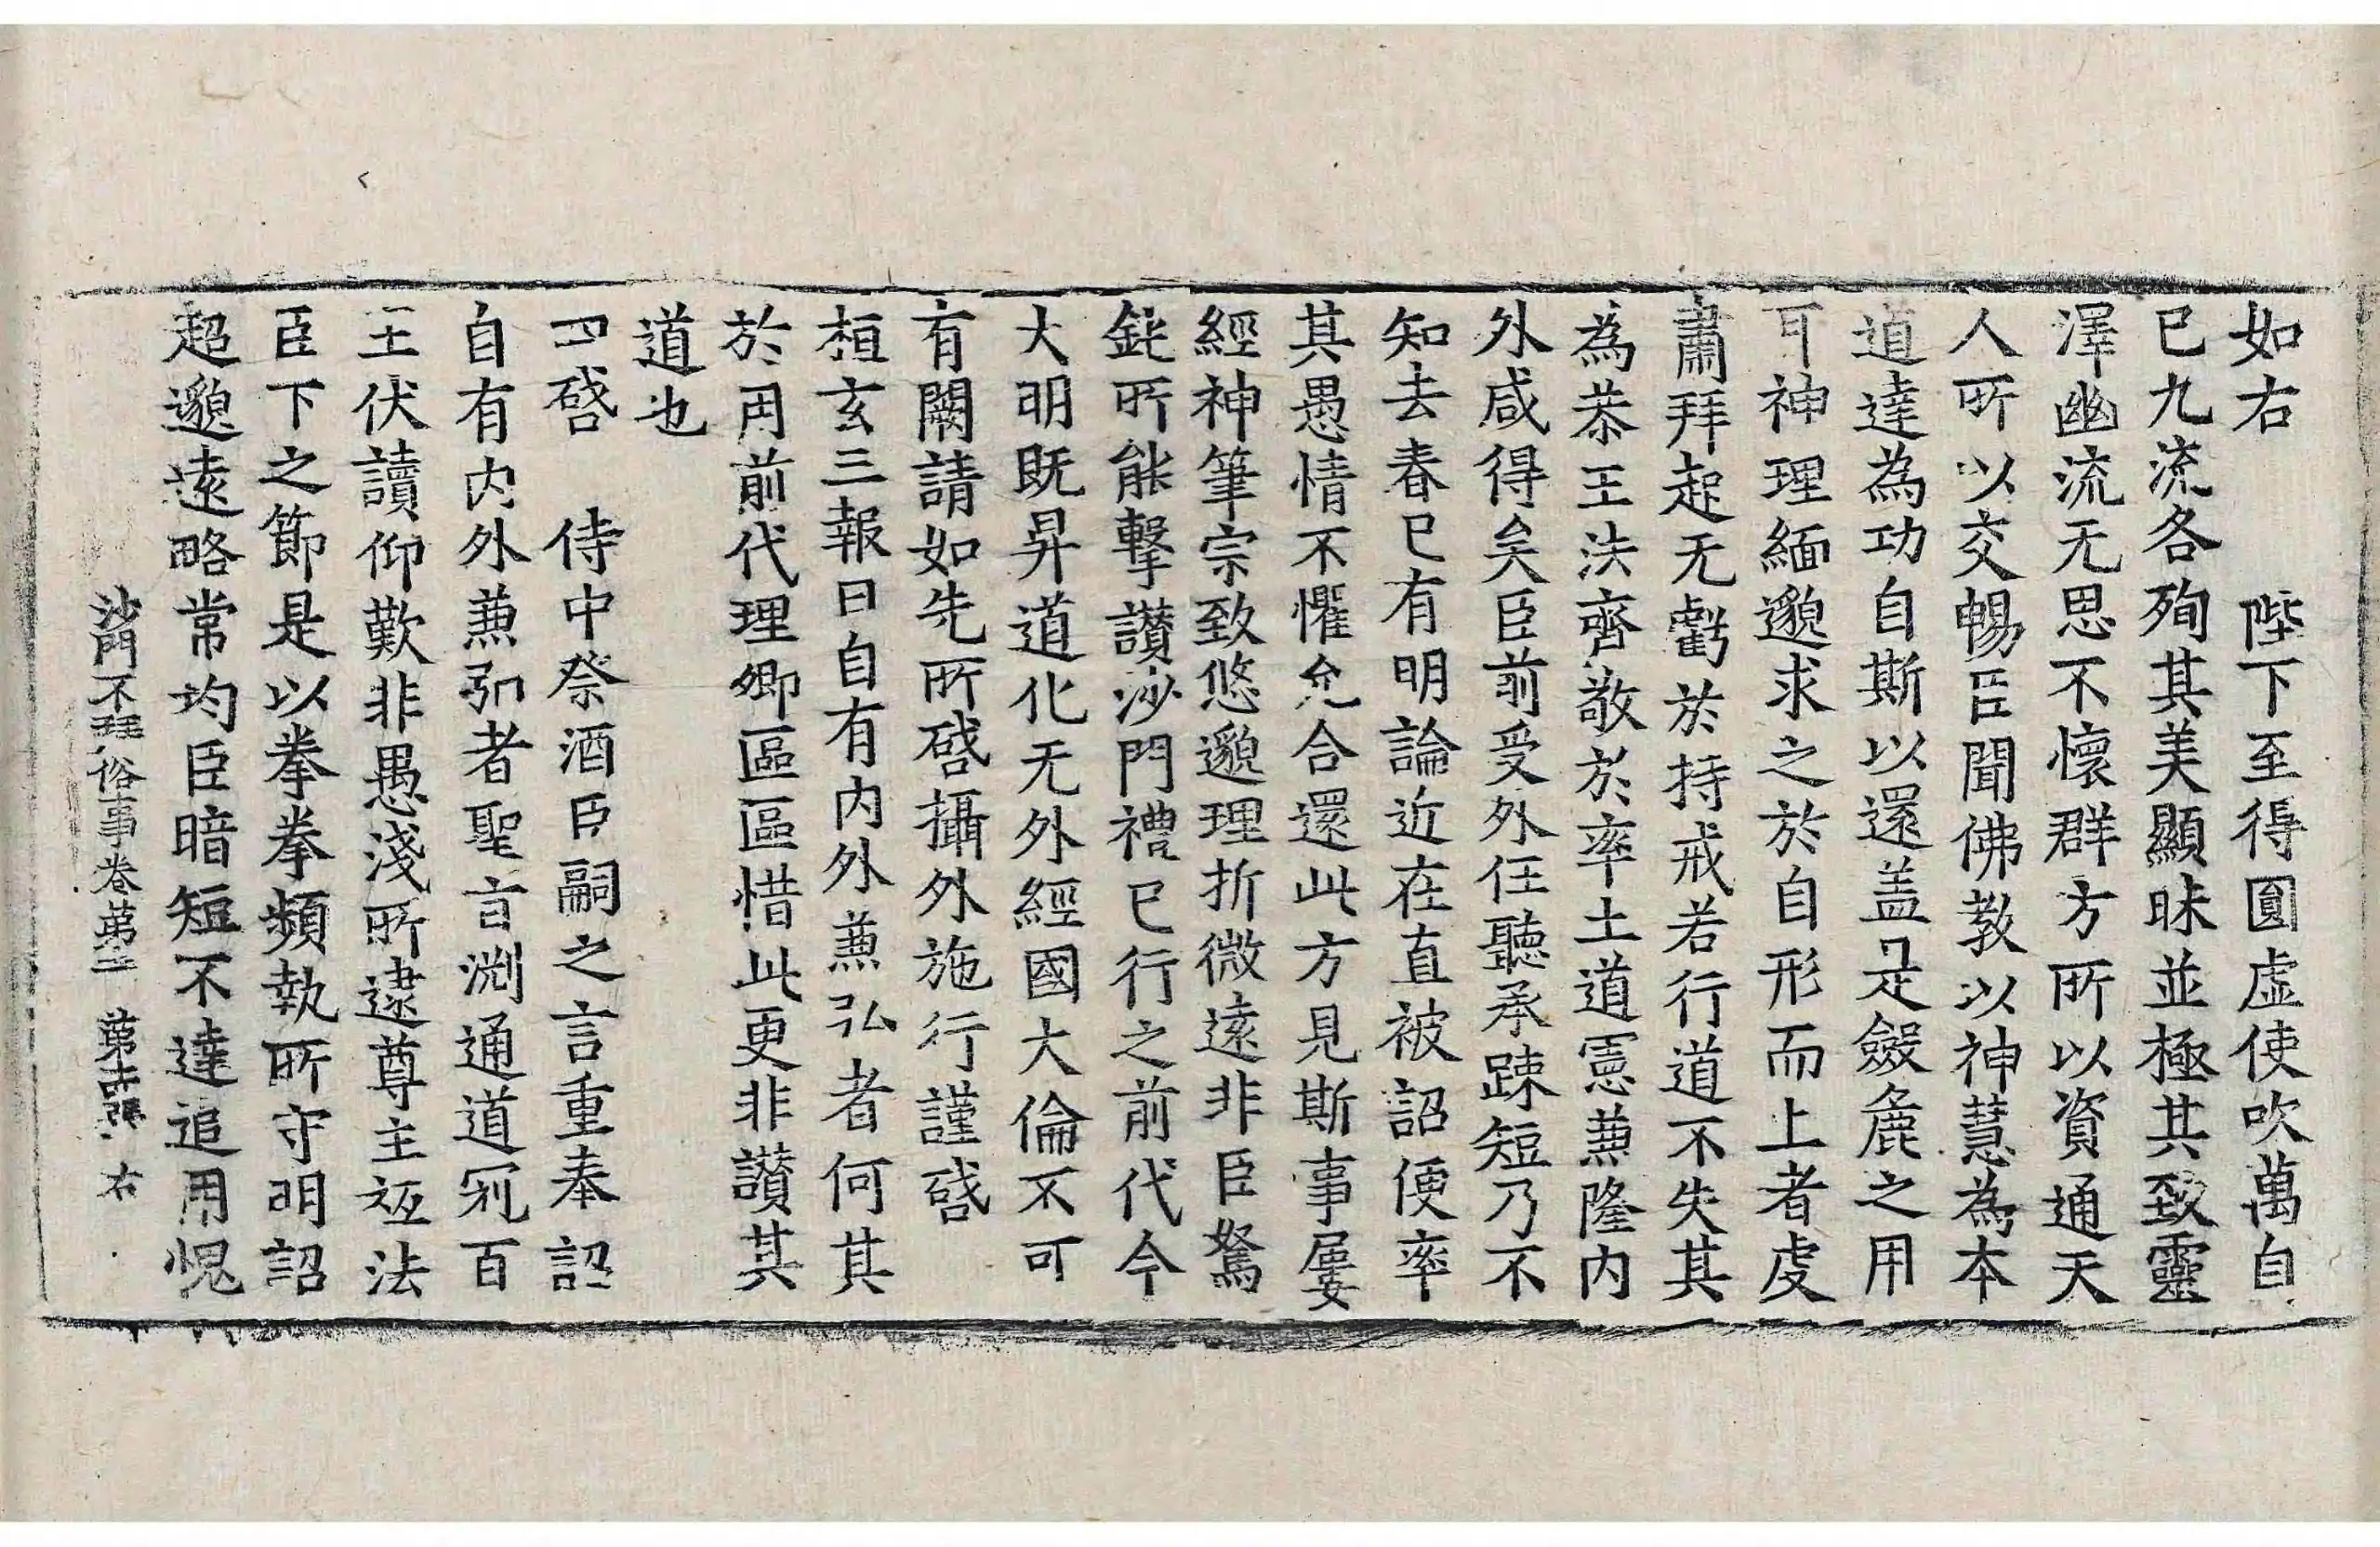 如右　　陛下至得圓虛使吹萬自
已九流各殉其美顯昧並極其致靈
澤幽流无思不懷群方所以資通天
人所以交暢臣聞佛教以神慧為本
道達為功自斯以還盖是斂麁之用
耳神理緬邈求之於自形而上者虔
肅拜起无虧於持戒若行道不失其
為恭王法齊敬於率土道憲兼隆内
外咸得矣臣前受外任聽承踈短乃不
知去春已有明論近在直被詔便率
其愚情不懼允合還此方見斯事屢
經神筆宗致悠邈理折微遠非臣駑
鈍所能擊讃沙門禮已行之前代今
大明既昇道化无外經國大倫不可
有闕請如先所啓攝外施行謹啓
桓玄三報曰自有内外兼弘者何其
於用前代理卿區區惜此更非讃其
道也
四啓　侍中祭酒臣嗣之言重奉詔
自有内外兼弘者聖言渕通道冠百
王伏讀仰歎非愚淺所逮尊主祗法
臣下之節是以拳拳頻執所守明詔
超邈遠略常均臣暗短不達追用愧
沙門不拜俗事卷第二　第十四張　右